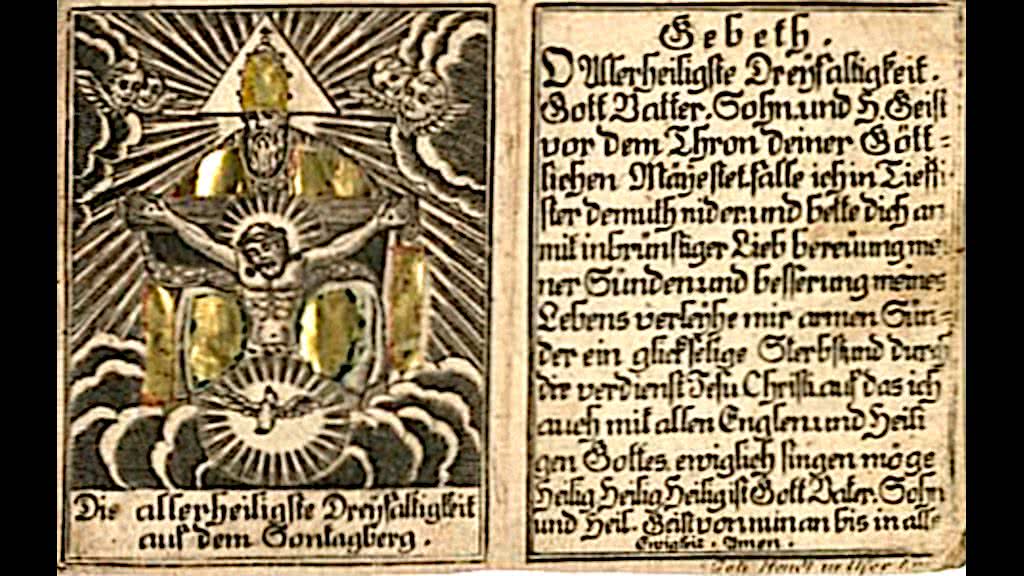 Die allerheiligste Dreyfaltigkeit
auf dem Sontagberg.
Gebeth.
O Allerheiligste Dreyfaltigkeit.
Gott Vatter. Sohn. und H. Geist
vor dem Thron deiner Gött=
lichen Mäyestet falle ich in Tieffi
ster demuth nider. und bette dich an
mit inbrünstiger Lieb bereüung mei
ner Sünden. und besserung meines
Lebens verleÿhe mir armen Sün=
der ein glickselige Sterbstund durch
die verdienst Jesu Christi. auf das ich
auch mit allen Englen. und Heili
gen Gottes. ewiglich singen möge
Heilig. Heilig. Heilig ist Gott Vater. Sohn
und Heil. Geist von nun an bis in alle
Ewigkeit. Amen.